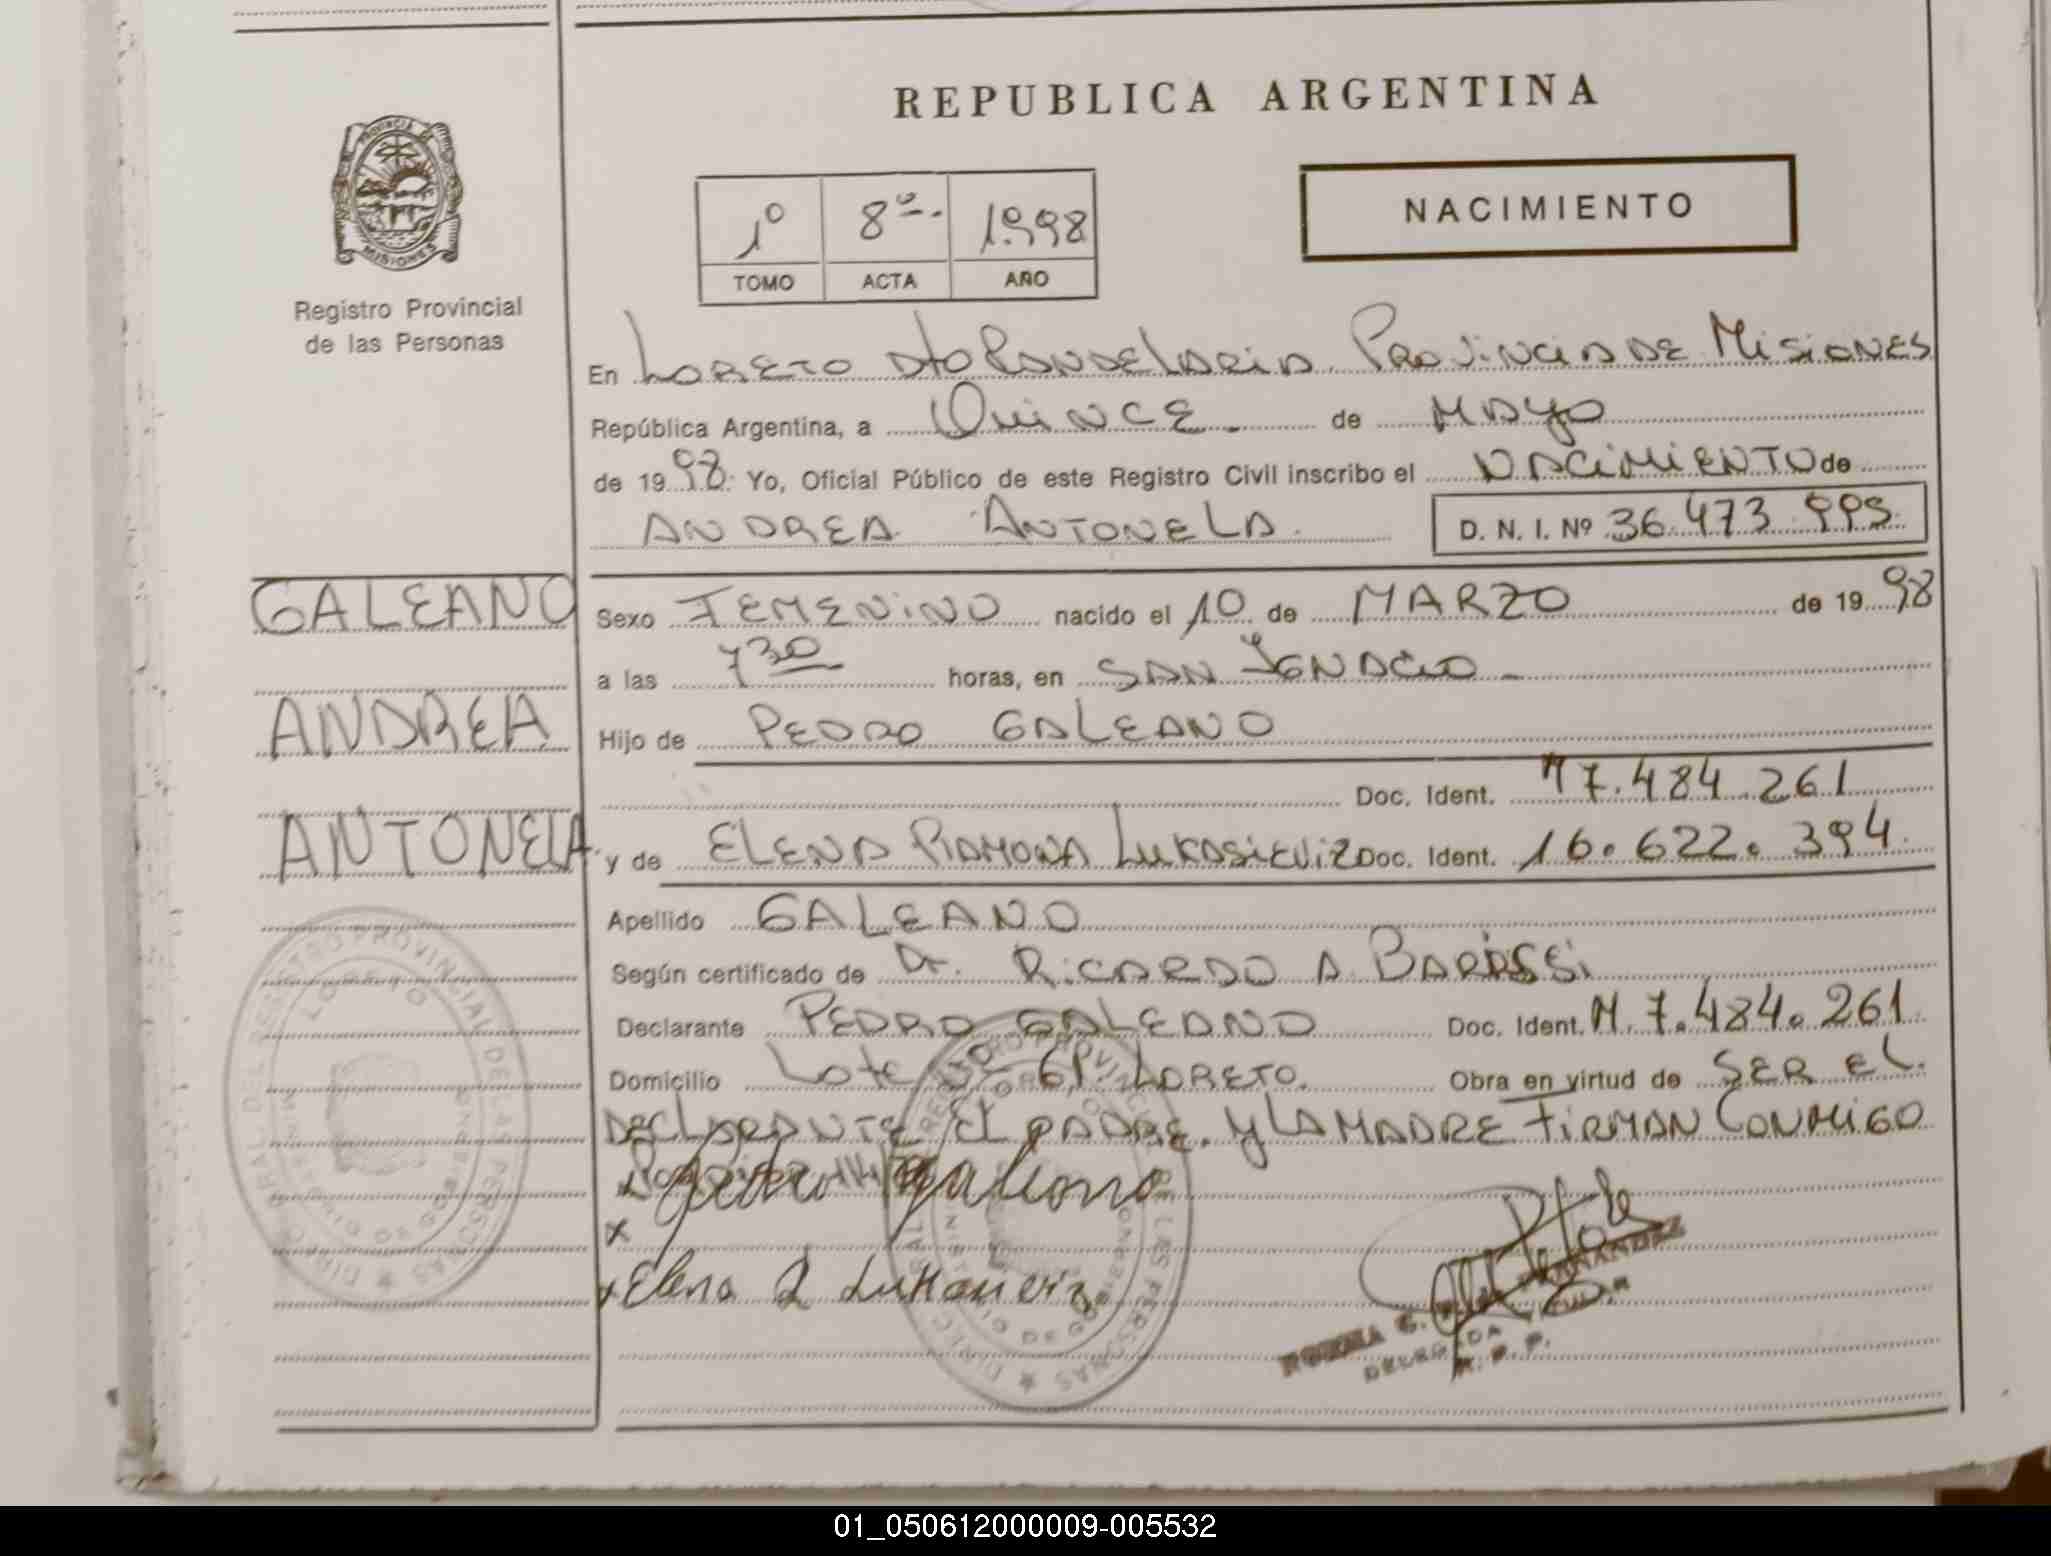 REPUBLICA ARGENTINA
PROVINCIA DE MISIONES
Registro Provincial
de las Personas
1º 8º 1998
TOMO ACTA AÑO
NACIMIENTO
En LORETO Dto CANDELARIA PROVINCIA DE MISIONES
República Argentina, a QUINCE de MAYO
de 1998. Yo, Oficial Público de este Registro Civil inscribo el NACIMIENTO de
ANDREA ANTONELA D. N. I. Nº 36.473.995
GALEANO
ANDREA
ANTONELA
Sexo FEMENINO nacido el 10 de MARZO de 1998
a las 730 horas, en SAN IGNACIO
Hijo de PEDRO GALEANO
Doc. Ident. M 7.484.261
y de ELENA RAMONA LUKASIEVIZ Doc. Ident. 16.622.394
Apellido GALEANO
Según certificado de Dr. RICARDO A BARISSI
Declarante PEDRO GALEANO Doc. Ident. M. 7.484.261
Domicilio Lote 61 LORETO. Obra en virtud de SER EL
DECLARANTE EL PADRE. Y LA MADRE FIRMAN CONMIGO
x Pedro Galeano
x
x Elena R Lukasieviz
FERNANDEZ
DELEGADA TITULAR
R. P. P.
DIREC. GRAL. DEL REGISTRO PROVINCIAL DE LAS PERSONAS
LORETO
MISIONES
DIREC. GRAL. DEL REGISTRO PROVINCIAL DE LAS PERSONAS
LORETO
01_050612000009-005532